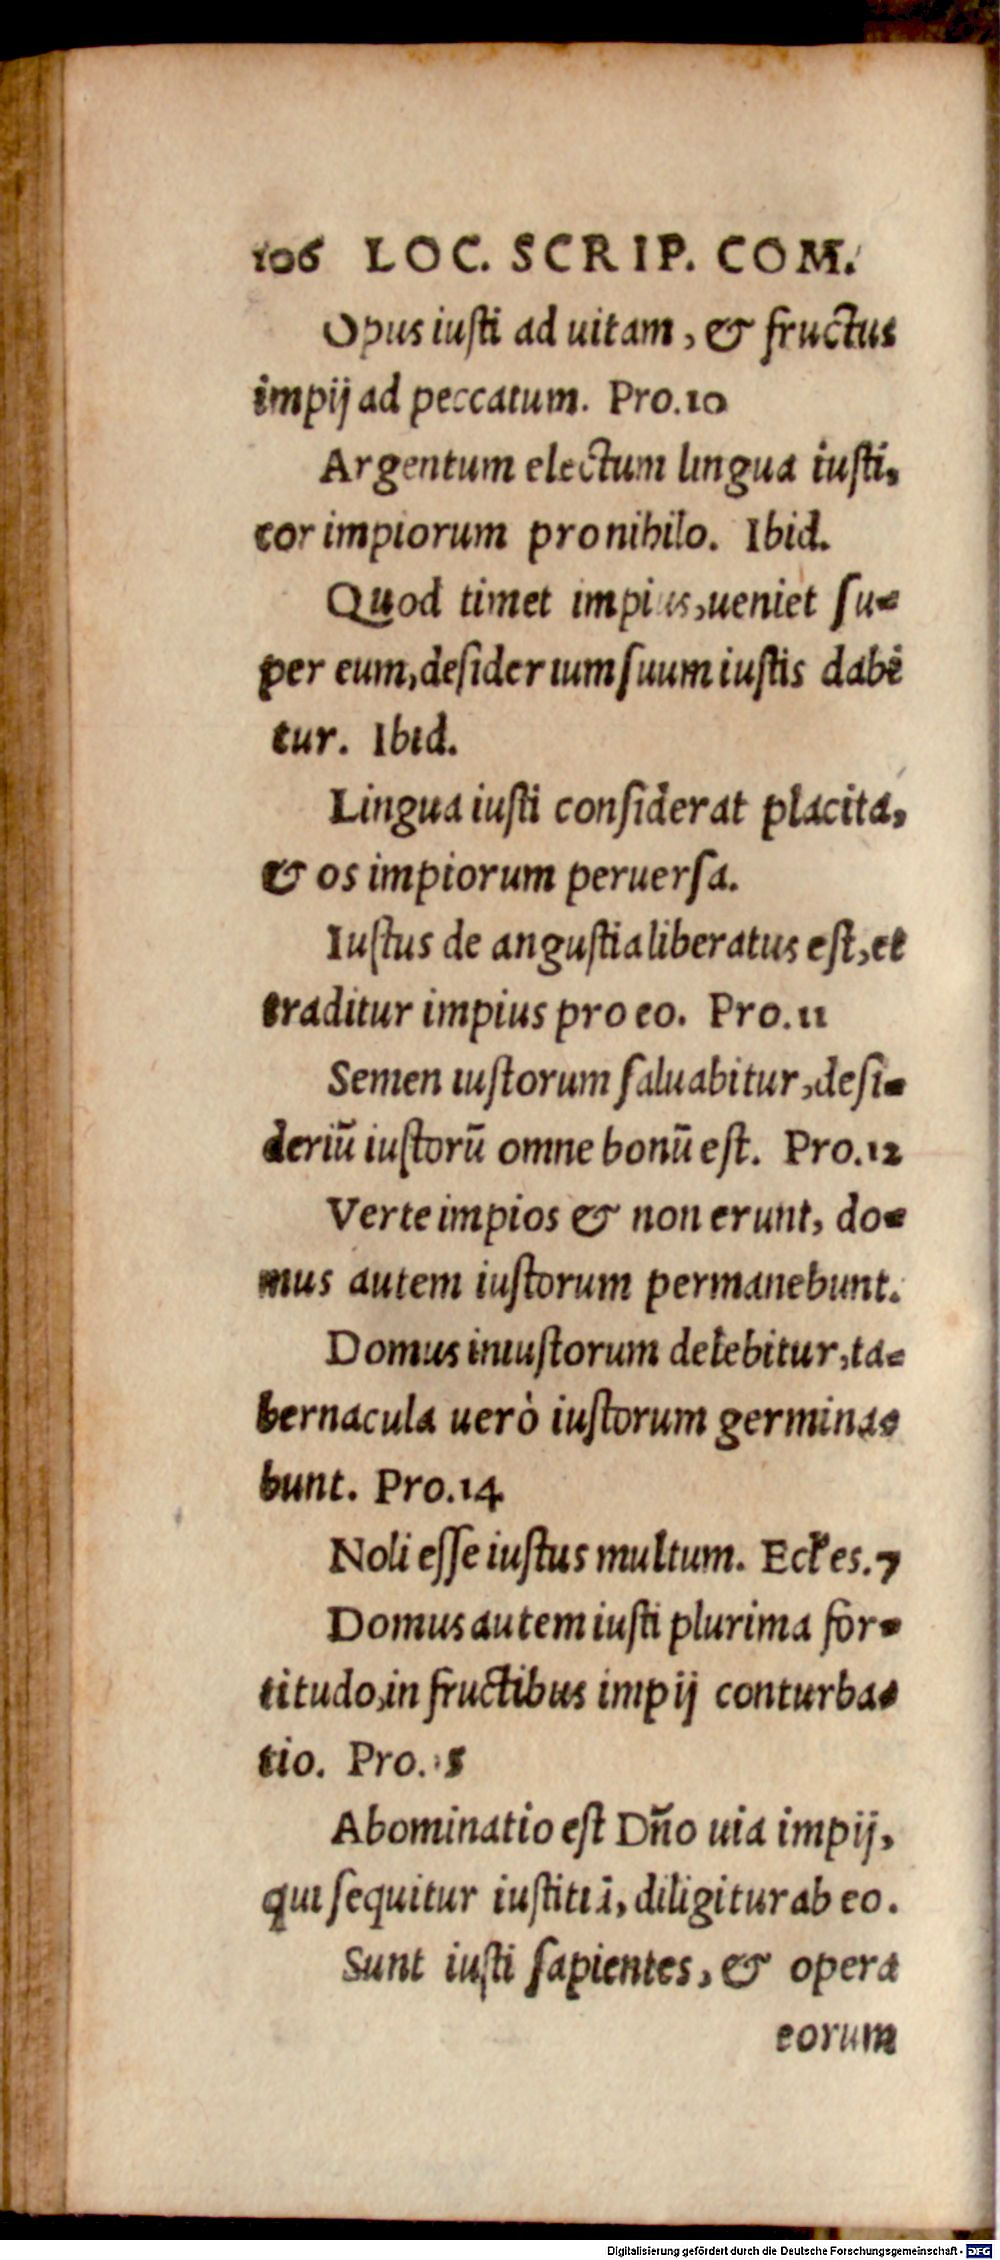 106 LOC. SCRIP. COM.
Opus iusti ad uitam, & fructus
impij ad peccatum. Pro.10
Argentum electum lingua iusti,
cor impiorum pro nihilo. Ibid.
Quod timet impius, ueniet su-
per eum, desiderium suum iustis dabi
tur. Ibid.
Lingua iusti considerat placita,
& os impiorum peruersa.
Iustus de angustia liberatus est, et
traditur impius pro eo. Pro.11
Semen iustorum saluabitur, desi-
deriū iustorū omne bonū est. Pro.12
Verte impios & non erunt, do-
mus autem iustorum permanebunt.
Domus iniustorum delebitur, ta-
bernacula uerò iustorum germina-
bunt. Pro.14
Noli esse iustus multum. Eccles.7
Domus autem iusti plurima for-
titudo, in fructibus impij conturba-
tio. Pro.15
Abominatio est Dño uia impij,
qui sequitur iustitiā, diligitur ab eo.
Sunt iusti sapientes, & opera
eorum
Digitalisierung gefördert durch die Deutsche Forschungsgemeinschaft - DFG